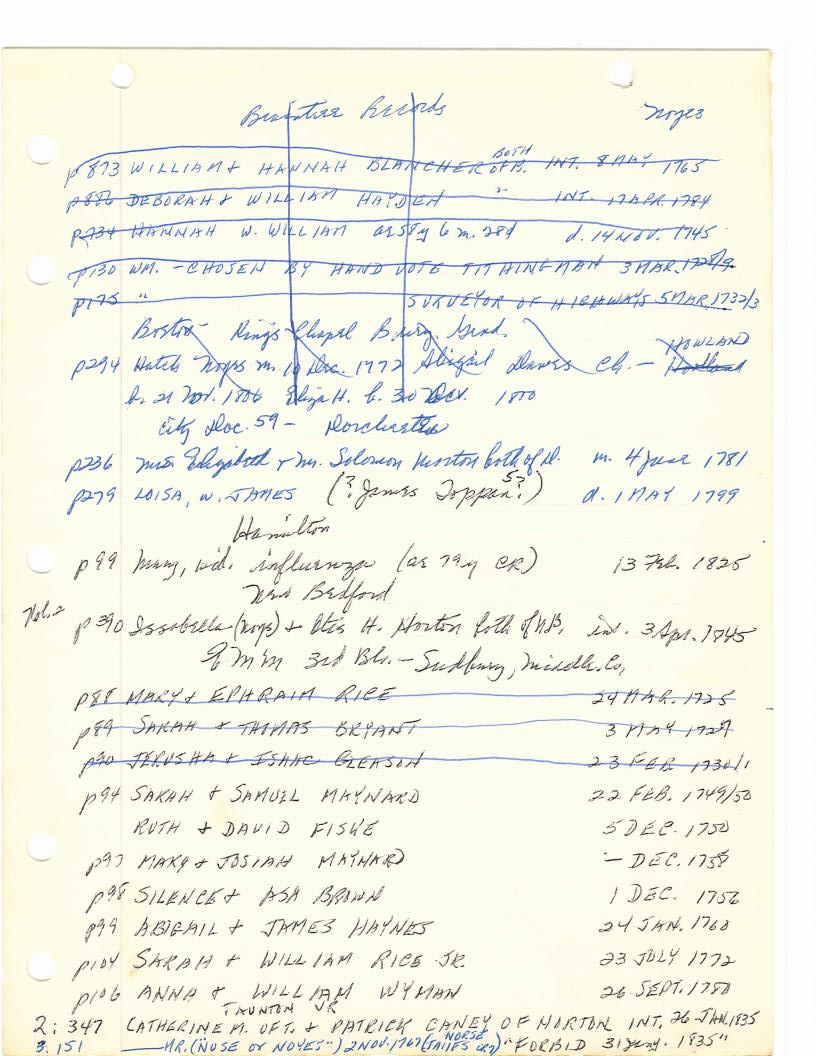 Braintree Records Noyes
p873 WILLIAM & HANNAH BLANCHER BOTH OF B. INT. 8 MAY 1765
p886 DEBORAH & WILLIAM HAYDEN " INT. 17 APR. 1784
p734 HANNAH W. WILLIAM ae 57y 6 m. 28d d. 14 NOV. 1745
p130 WM. - CHOSEN BY HAND VOTE TITHINGMAN 3 MAR. 1728/9
p175 " SURVEYOR OF HIGHWAYS 5 MAR. 1732/3
Boston Kings Chapel Burying Grnd.
p294 Hatch Noyes m. 10 Dec. 1772 Abigail Dawes Ch. - HOWLAND
b. 21 Nov. 1806 Eliza H. b. 30 Oct. 1800
City Doc. 59 - Dorchester
p236 Mrs Elizabeth & Mr. Solomon Horton both of D. m. 4 June 1781
p279 LOISA, W. JAMES (? James Toppan 5?) d. 1 MAY 1799
Hamilton
p99 Mary, wd. influenza (ae 79y CR) 13 Feb. 1825
New Bedford
Vol. 2
p390 Issabella (Noys) & Otis H. Horton both of N.B. int. 3 Apr. 1845
3rd Bk. - Sudbury, Middle. Co,
p88 MARY & EPHRAIM RICE 24 MAR. 1725
p89 SARAH & THOMAS BRYANT 3 MAY 1727
p90 JERUSHA & ISAAC GLEASON 23 FEB 1730/1
p94 SARAH & SAMUEL MAYNARD 22 FEB. 1749/50
RUTH & DAVID FISKE 5 DEC. 1750
p97 MARY & JOSIAH MAYNARD - DEC. 1758
p98 SILENCE & ASA BROWN 1 DEC. 1756
p99 ABIGAIL & JAMES HAYNES 24 JAN. 1760
p104 SARAH & WILLIAM RICE JR. 23 JULY 1772
p106 ANNA & WILLIAM WYMAN 26 SEPT. 1780
2:347 CATHERINE M. OF T. TAUNTON & PATRICK CANEY JR OF NORTON INT. 26 JAN. 1835
3.151 —— MR. ("NUSE OR NOYES") 2 NOV. 1767 (NORSE) "FORBID 31 1835"